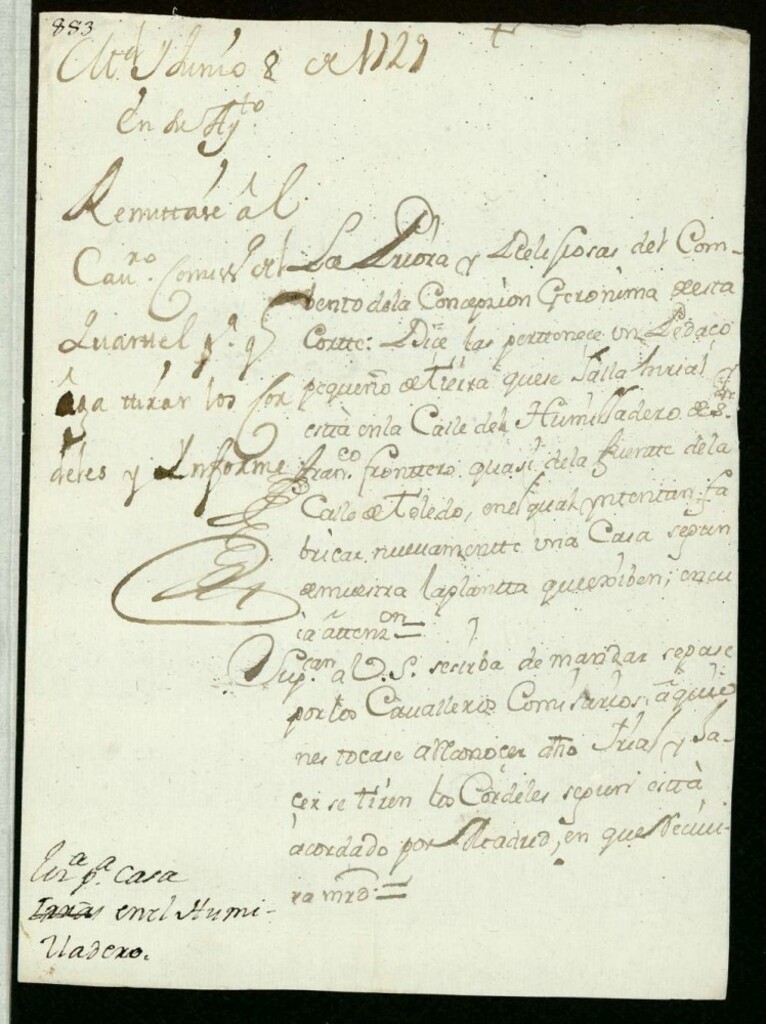 883
M.d y Junio 8 de 1729
En su Ay.to
Remittase al
Cau.ro Comiss.o del
Quartel p.a q
aga tirar los Cor
deles y Informe
La Priora y Relijiosas del Com-
bento dela Conzepzion Geronima de esta
Cortte: Dize las perttenece un Pedaço
pequeño de tierra que se halla herial y
está en la Calle del Humilladero de S.
fran.co fronttero quasi dela fuentte de la
Calle de Toledo, en el qual yntentan fa
bricar nuevamentte una Casa segun
demuestra la plantta que exiben; en cu
ia attenz.on =
Sup.can a V.S. se sirba de mandar se pase
por los Cavalleros Comisarios, a quie
nes tocase a Reconozer dho Irial y ha-
cer se tiren los Cordeles segun está
acordado por Madrid, en que Recivi-
ra mrd =
Liz.a p.a casa
en el Humi-
lladero.